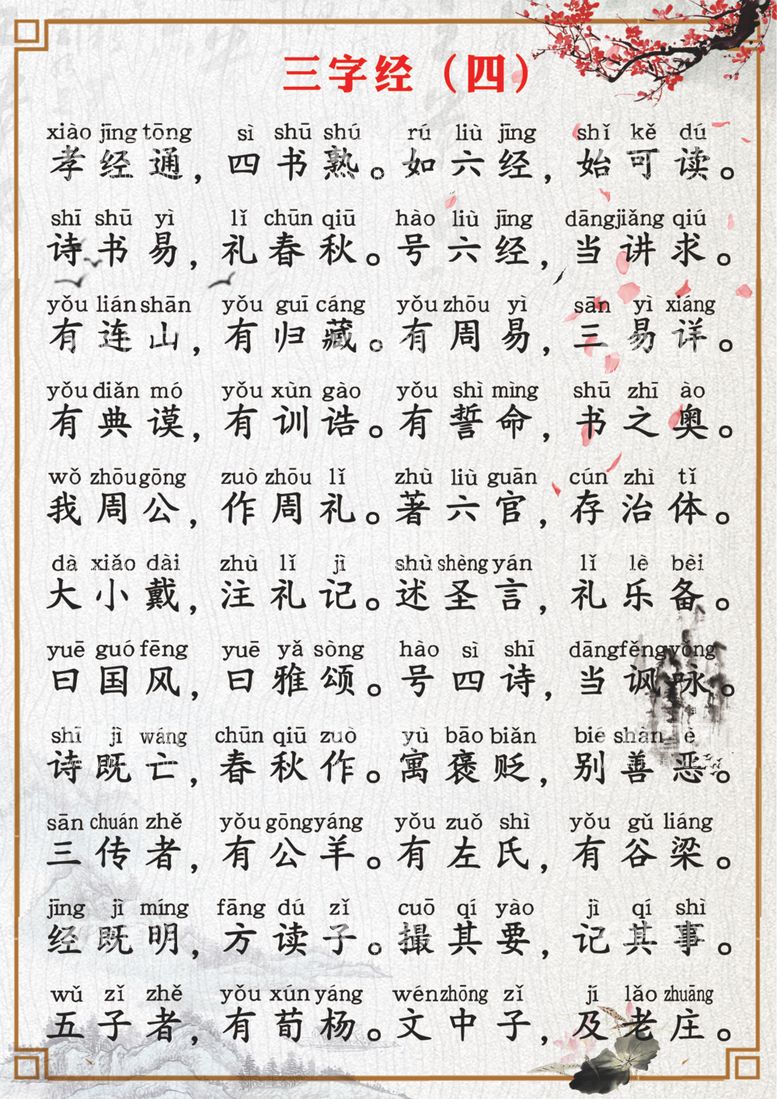 三字经（四）
xiào jīng tōng sì shū shú rú liù jīng shǐ kě dú
孝经通，四书熟。如六经，始可读。
shī shū yì lǐ chūn qiū hào liù jīng dāng jiǎng qiú
诗书易，礼春秋。号六经，当讲求。
yǒu lián shān yǒu guī cáng yǒu zhōu yì sān yì xiáng
有连山，有归藏。有周易，三易详。
yǒu diǎn mó yǒu xùn gào yǒu shì mìng shū zhī ào
有典谟，有训诰。有誓命，书之奥。
wǒ zhōu gōng zuò zhōu lǐ zhù liù guān cún zhì tǐ
我周公，作周礼。著六官，存治体。
dà xiǎo dài zhù lǐ jì shù shèng yán lǐ lè bèi
大小戴，注礼记。述圣言，礼乐备。
yuē guó fēng yuē yǎ sòng hào sì shī dāng fěng yǒng
曰国风，曰雅颂。号四诗，当讽咏。
shī jì wáng chūn qiū zuò yù bāo biǎn bié shàn è
诗既亡，春秋作。寓褒贬，别善恶。
sān chuán zhě yǒu gōng yáng yǒu zuǒ shì yǒu gǔ liáng
三传者，有公羊。有左氏，有谷梁。
jīng jì míng fāng dú zǐ cuō qí yào jì qí shì
经既明，方读子。撮其要，记其事。
wǔ zǐ zhě yǒu xún yáng wén zhōng zǐ jí lǎo zhuāng
五子者，有荀杨。文中子，及老庄。